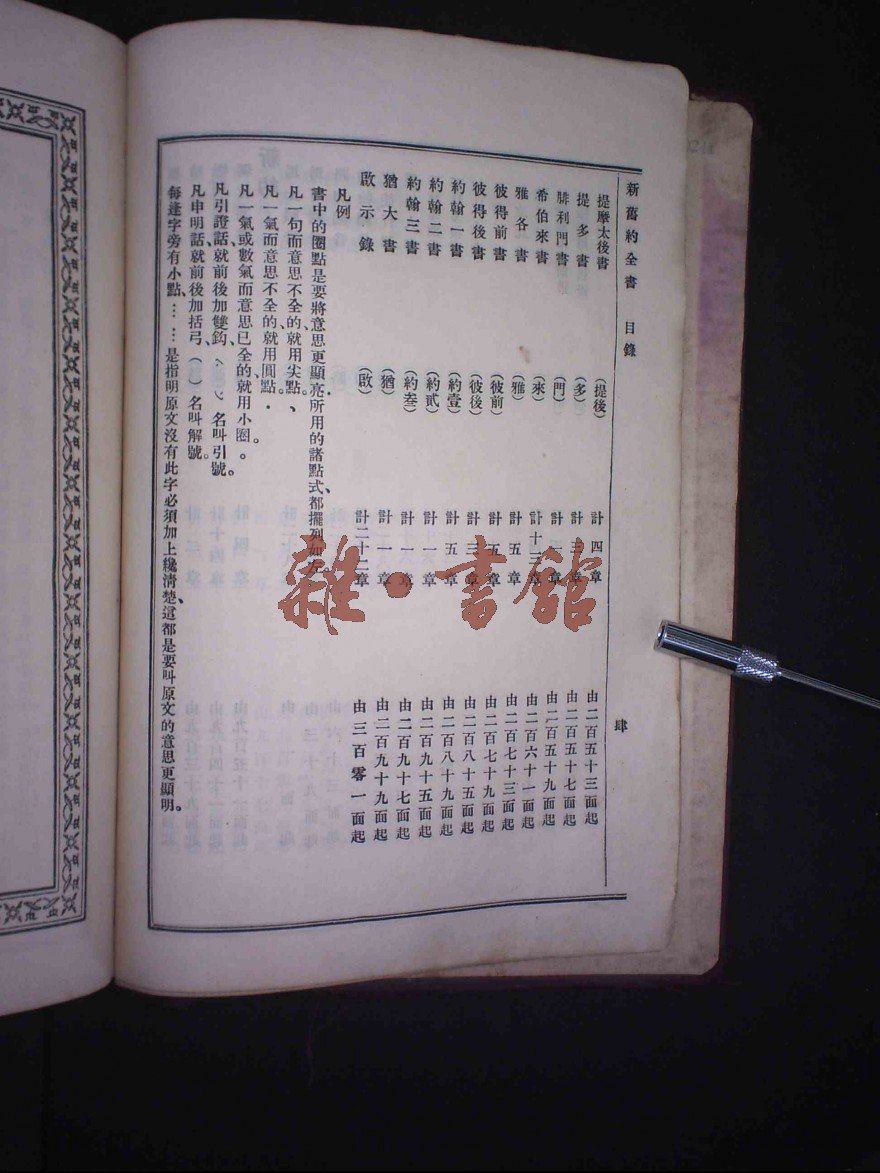 新舊約全書 目錄 肆
提摩太後書 (提後) 計四章 由二百五十三面起
提多書 (多) 計三章 由二百五十七面起
腓利門書 (門) 計一章 由二百五十九面起
希伯來書 (來) 計十三章 由二百六十一面起
雅各書 (雅) 計五章 由二百七十三面起
彼得前書 (彼前) 計五章 由二百七十九面起
彼得後書 (彼後) 計三章 由二百八十五面起
約翰一書 (約壹) 計五章 由二百八十九面起
約翰二書 (約貳) 計一章 由二百九十五面起
約翰三書 (約叁) 計一章 由二百九十七面起
猶大書 (猶) 計一章 由二百九十九面起
啟示錄 (啟) 計二十二章 由三百零一面起
凡例
書中的圈點是要將意思更顯亮所用的諸點式、都擺列如左。
凡一句而意思不全的、就用尖點。、
凡一氣而意思不全的、就用圓點。·
凡一氣或數氣而意思已全的、就用小圈。。
凡引證話、就前後加雙鈎、名叫引號。
凡申明話、就前後加括弓、( )名叫解號。
每逢字旁有小點、……是指明原文沒有此字必須加上纔清楚、這都是要叫原文的意思更顯明。
雜·書館